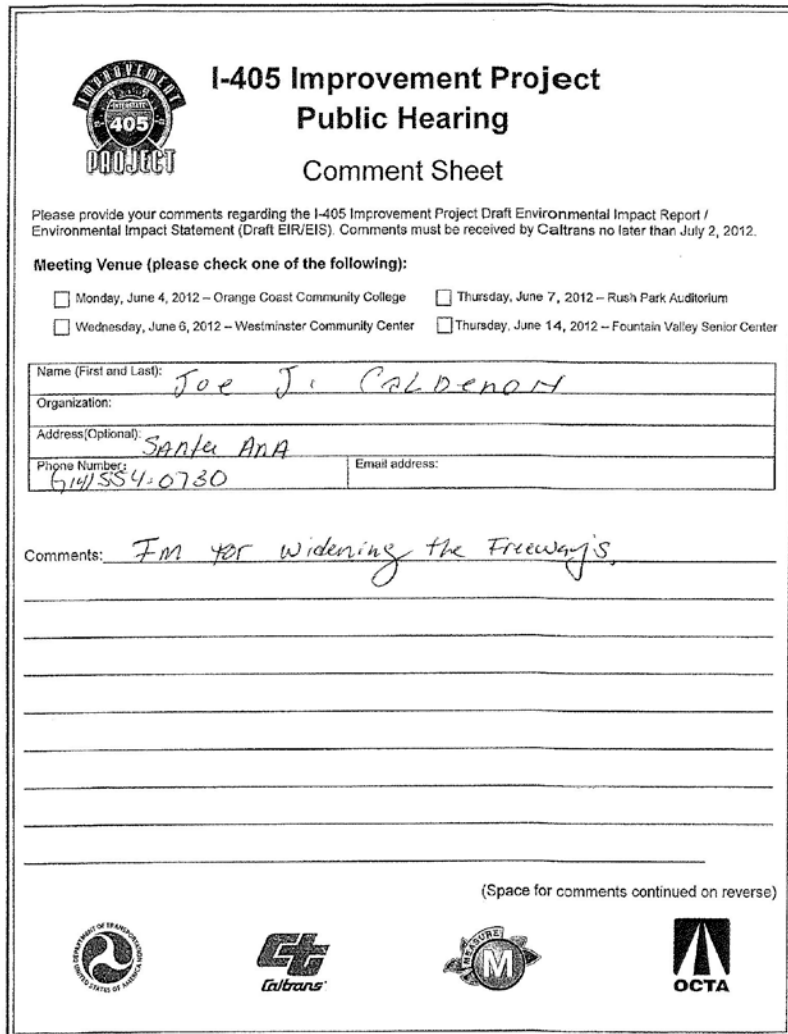 IMPROVEMENT
INTERSTATE
405
PROJECT
I-405 Improvement Project
Public Hearing
Comment Sheet
Please provide your comments regarding the I-405 Improvement Project Draft Environmental Impact Report /
Environmental Impact Statement (Draft EIR/EIS). Comments must be received by Caltrans no later than July 2, 2012.
Meeting Venue (please check one of the following):
Monday, June 4, 2012 – Orange Coast Community College
Thursday, June 7, 2012 – Rush Park Auditorium
Wednesday, June 6, 2012 – Westminster Community Center
Thursday, June 14, 2012 – Fountain Valley Senior Center
Name (First and Last): Joe J.
Organization:
Address(Optional): Santa Ana
Phone Number: (714) 554-0730
Email address:
Comments: Im for widening the Freeway's.
(Space for comments continued on reverse)
DEPARTMENT OF TRANSPORTATION
UNITED STATES OF AMERICA
Caltrans
MEASURE
M
OCTA